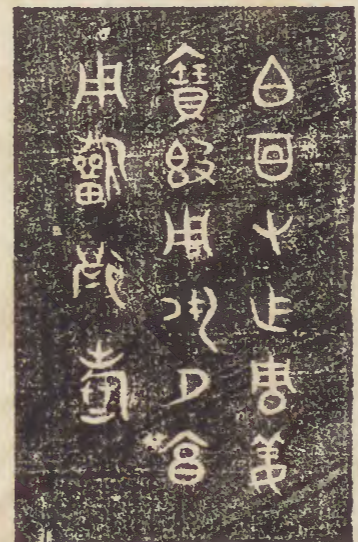 白百父乍周姜
寶𣪘用夙夕亯
用𣄨萬壽